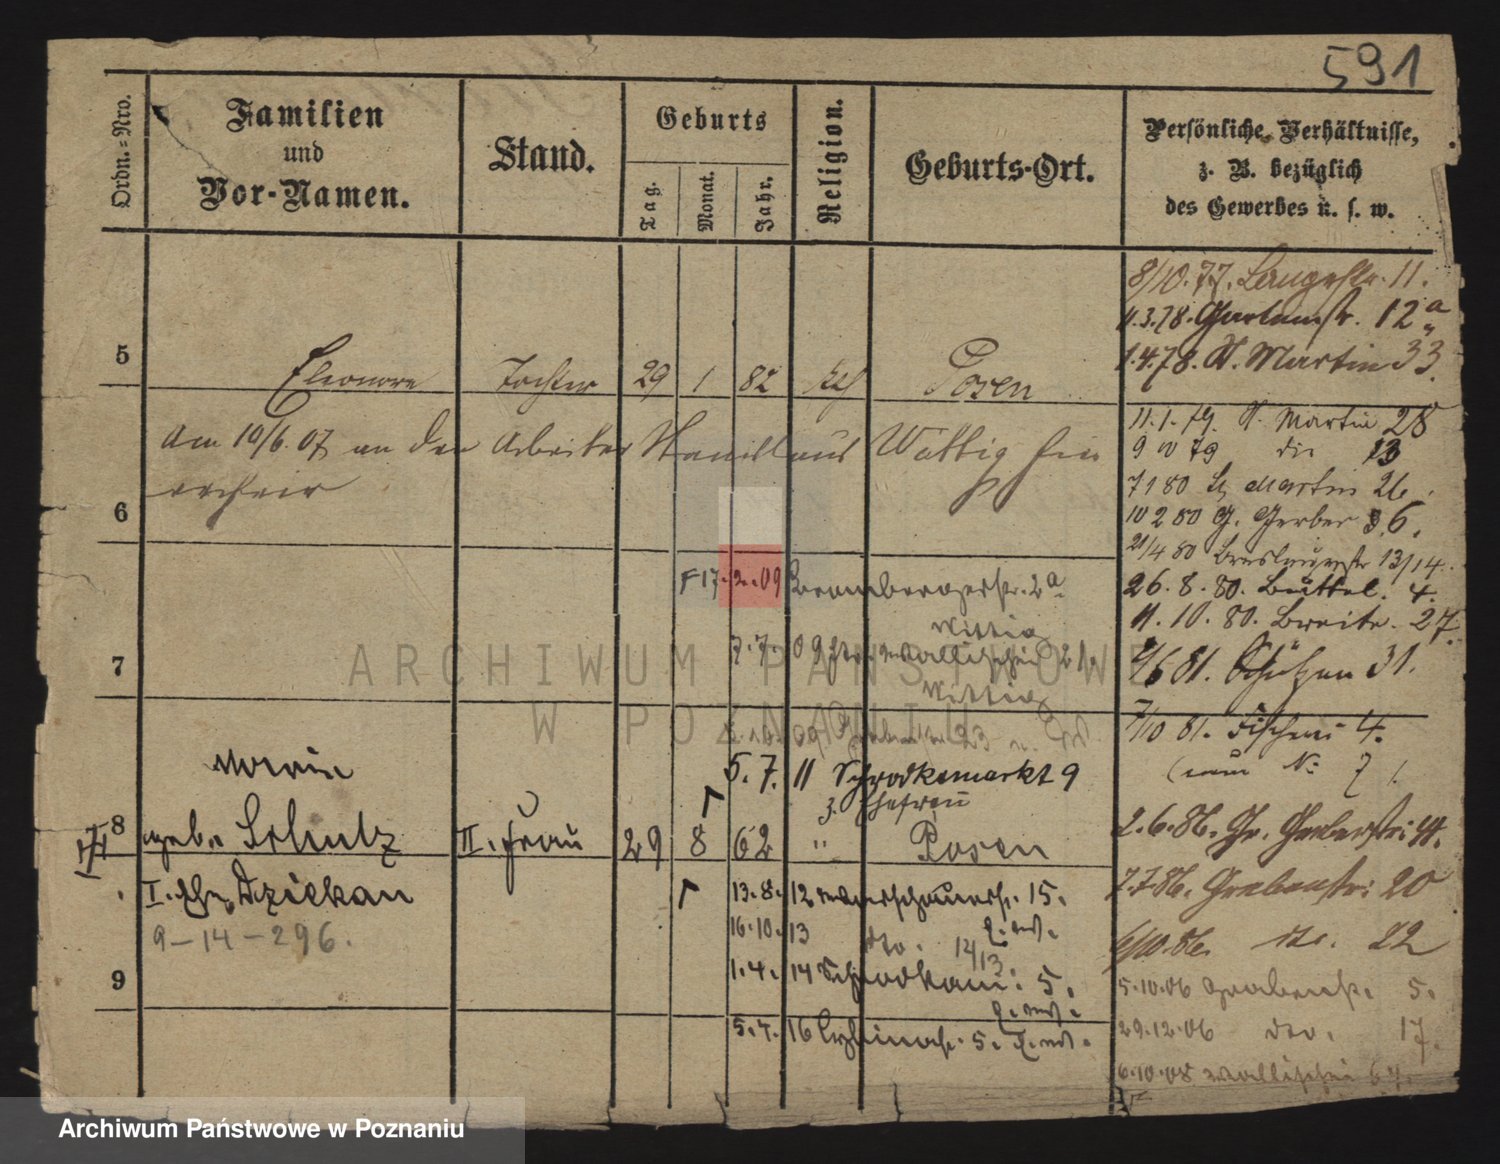 591
Ordn.-Nro.
Familien
und
Vor-Namen.
Stand.
Geburts
Tag.
Monat.
Jahr.
Religion.
Geburts-Ort.
Persönliche Verhältnisse,
z. B. bezüglich
des Gewerbes u. s. w.
8/10.77. Langestr. 11.
11.3.78. Gartenstr. 12a
1.4.78. St. Martin 33.
5 Eleonore Tochter 29 1 82 kth Posen
11.1.79. St. Martin 28
9 10 79 13
7 1 80 St Martin 26.
10 2 80 G. Gerber 36.
21/4 80 Breslauerstr 13/14.
26.8.80. Büttel. 4.
11.10.80. Breite. 27.
81. Schützen 31.
7/10 81. Fischerei 4.
(nun No 7).
am 19/6.07 an den Arbeiter Stanislaus Wittig
6
17.2.09 Brombergerstr. 2a
Wittig
7.7.09 Wallischei
7
Wittig
5.7.11 Schrodkamarkt 9
z. Ehefrau
Marie
8 gebr. Schulz II. Frau 29 8 62 " Posen
I. Ehe Dziekan
9-14-296.
13.8.12 Warschauerstr. 15.
16.10.13 dto. 14/13.
1.4.14 Schrodkam. 5.
9
5.4.16 5.
2.6.86. Gr. Gerberstr:
7.7.86. Grabenstr: 20
6/10.86. dto. 22
5.10.06 Grabenstr. 5.
29.12.06 dto. 17.
6.10.08 Wallischei 64.
ARCHIWUM PAŃSTWOWE
W POZNANIU
Archiwum Państwowe w Poznaniu